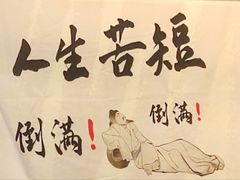 人生苦短
倒满!
倒满!